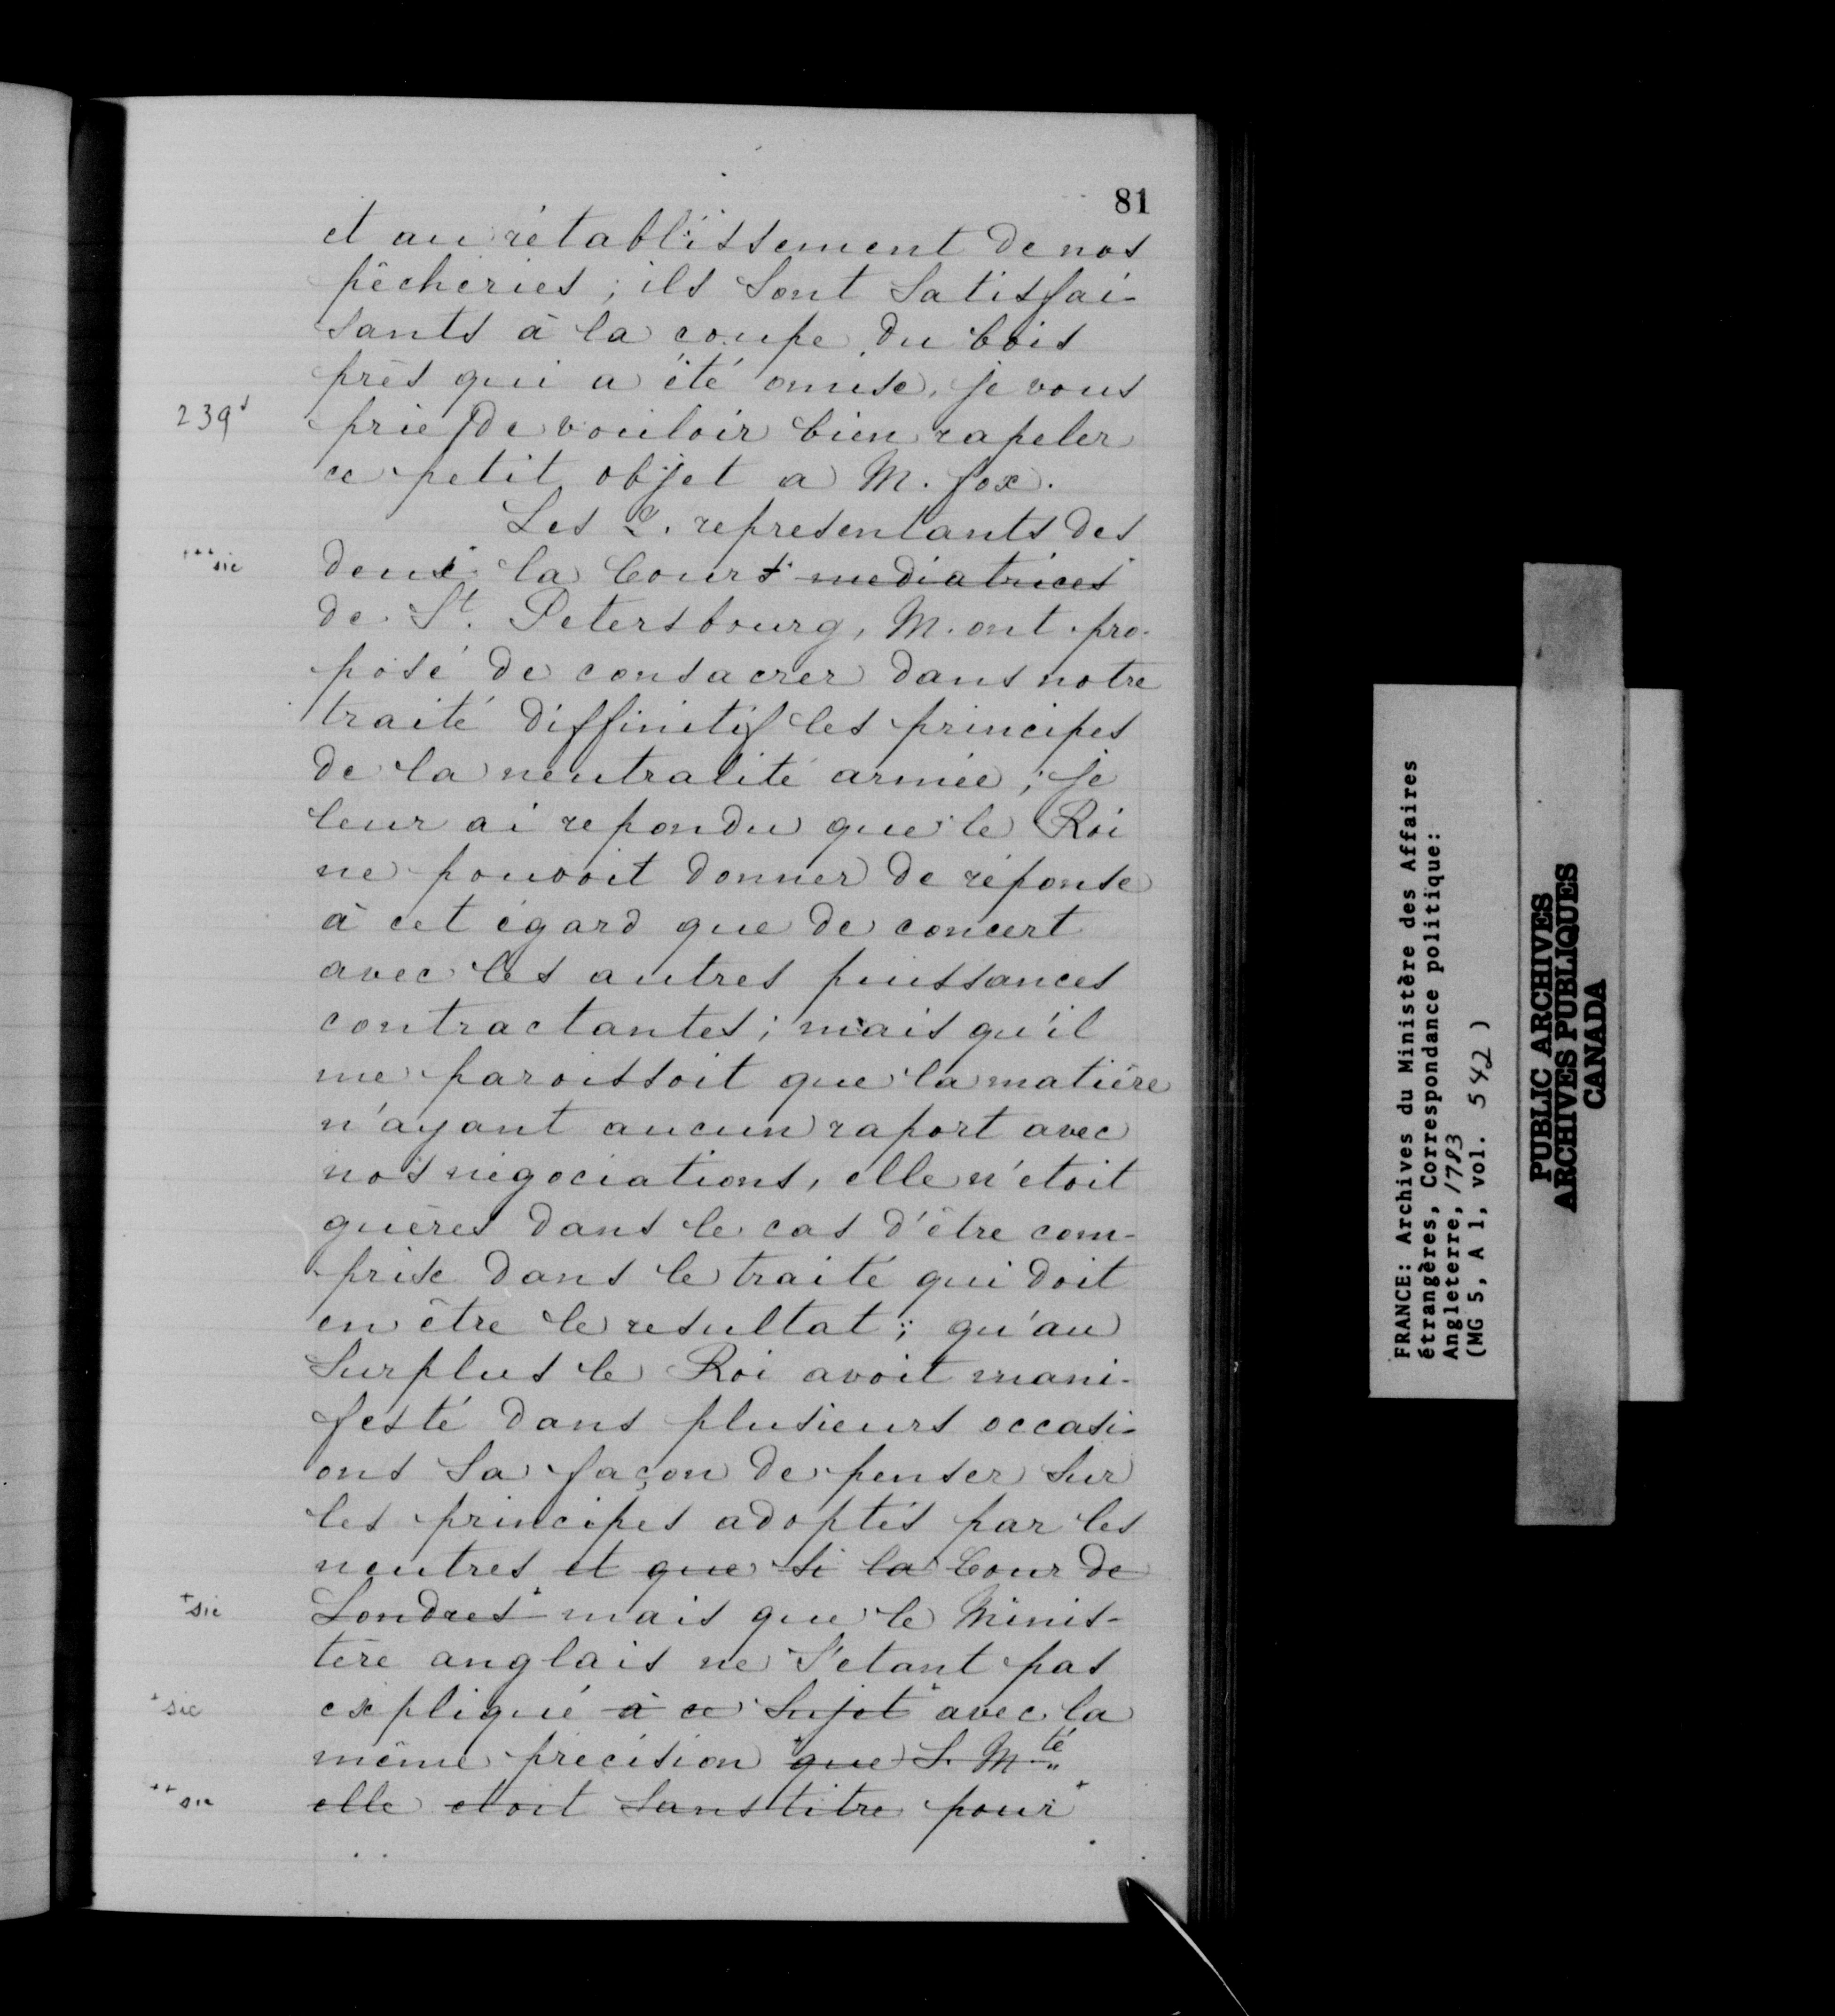 81
et au rétablissement de nos
pêcheries ; ils sont satisfai-
sants à la coupe du bois
près qui a été omise, je vous
239
prie de vouloir bien rapeler
ce petit objet a M. fox.
Les 2. representants des
+++ sic
deux la Cours mediatrices
de St. Petersbourg, M. ont pro-
posé de consacrer dans notre
traité diffinitif les principes
de la neutralité armée ; je
leur ai repondu que le Roi
ne pouvoit donner de réponse
à cet égard que de concert
avec les autres puissances
contractantes ; mais qu'il
me paroissoit que la matière
n'ayant aucun raport avec
nos négociations, elle n'etoit
guères dans le cas d'être com-
prise dans le traité qui doit
en être le resultat ; qu'au
surplus le Roi avoit mani-
festé dans plusieurs occasi-
ons sa façon de penser sur
les principes adoptés par les
neutres et que si la Cour de
+ sic
Londres + mais que le Minis-
tère anglais ne s'etant pas
+ sic
expliqué à ce sujet + avec la
même précision + que S. Mté
++ sic
elle etoit sans titre pour +
FRANCE: Archives du Ministère des Affaires
étrangères, Correspondance politique:
Angleterre, 1783
(MG 5, A 1, vol. 542 )
PUBLIC ARCHIVES
ARCHIVES PUBLIQUES
CANADA